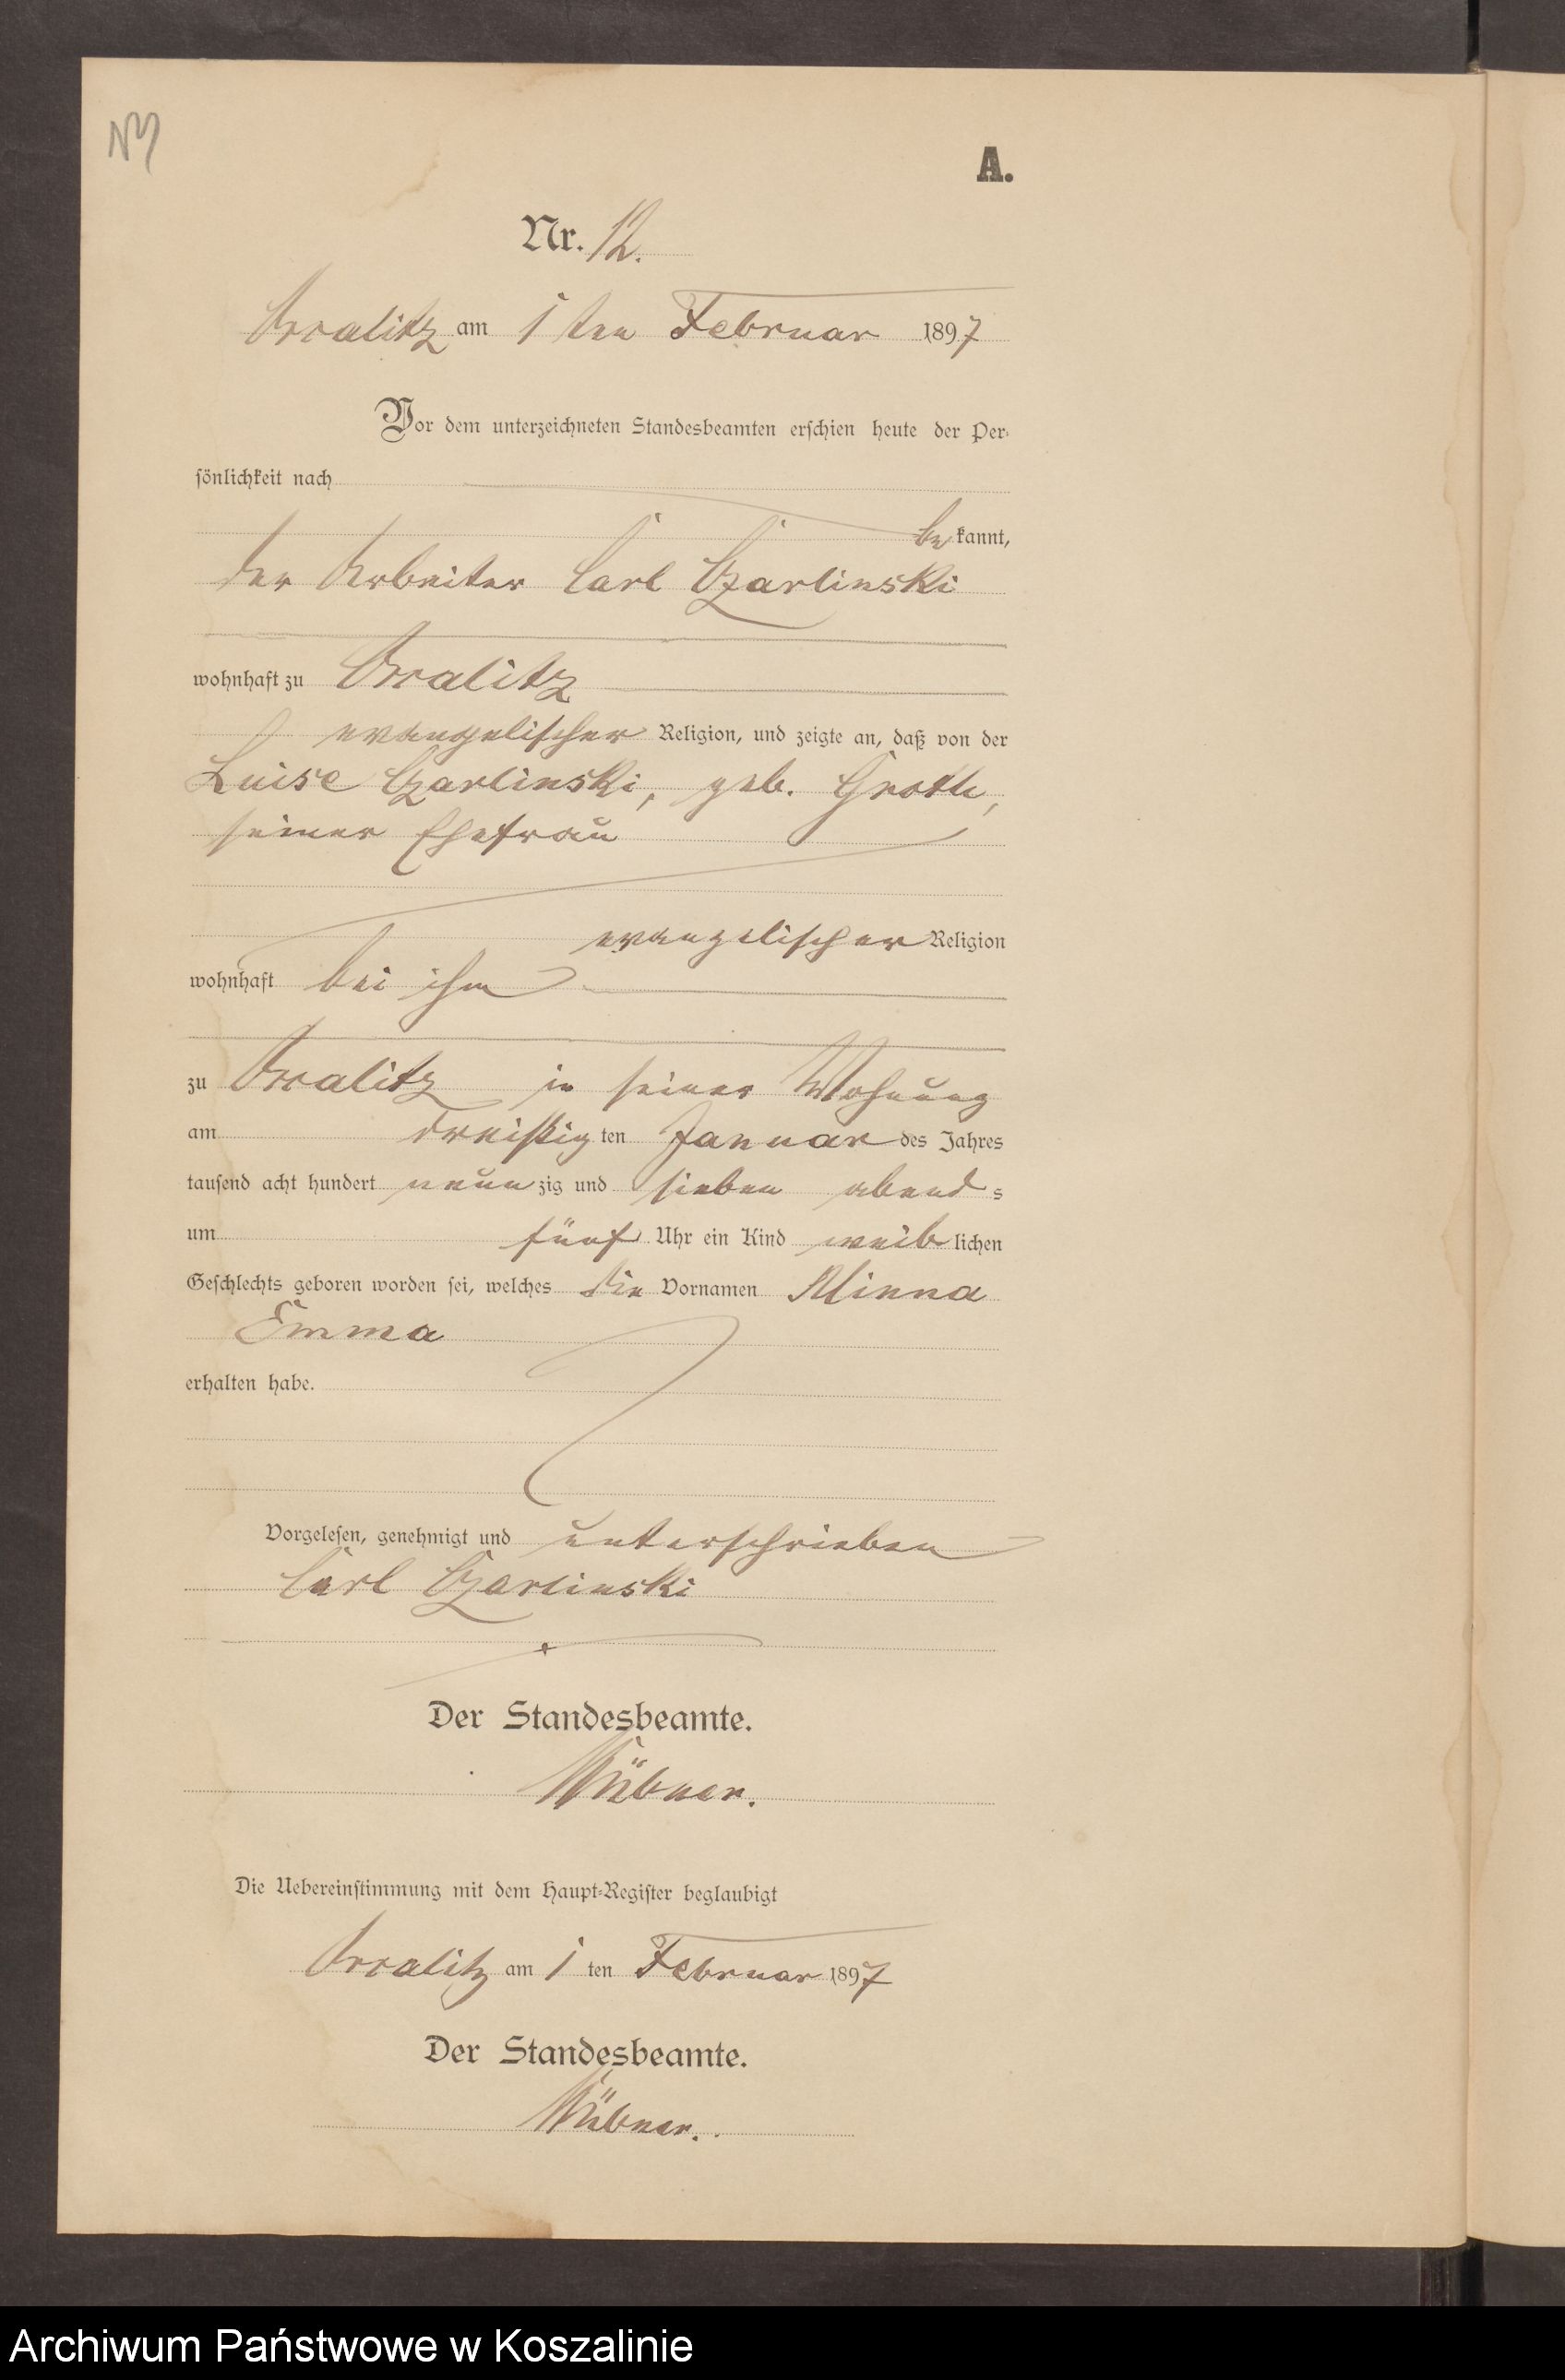 A.
Nr. 12.
am 1ten Februar 1897
Vor dem unterzeichneten Standesbeamten erschien heute der Per-
sönlichkeit nach
be kannt,
der Arbeiter Carl Czarlinski
wohnhaft zu
evangelischer Religion, und zeigte an, daß von der
Luise Czarlinski, geb. Groth,
seiner Ehefrau
evangelischer Religion
wohnhaft bei ihm
zu in seiner Wohnung
am dreißig ten Januar des Jahres
tausend acht hundert neun zig und sieben abends
um fünf Uhr ein Kind weib lichen
Geschlechts geboren worden sei, welches die Vornamen Minna
Emma
erhalten habe.
Vorgelesen, genehmigt und unterschrieben
Carl Czarlinski
Der Standesbeamte.
Die Uebereinstimmung mit dem Haupt-Register beglaubigt
am 1 ten Februar 1897
Der Standesbeamte.
Archiwum Państwowe w Koszalinie